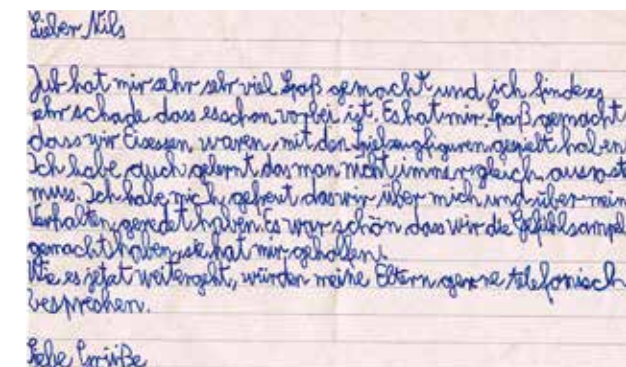 Lieber Nils
Jub hat mir sehr sehr viel Spaß gemacht und ich finde es
ehr schade dass es schon vorbei ist. Es hat mir Spaß gemacht
dass wir Eisessen, waren, mit den Spielzeugfiguren gespielt haben
Ich habe auch gelernt das man nicht immer gleich ausrast
muss. Ich habe mich gefreut das wir über mich und über mein
Verhalten, geredet haben. Es war schön dass wir die Gefühlsampel
gemacht haben, sie hat mir geholfen.
Wie es jetzt weitergeht, würden meine Eltern gerne telefonisch
besprechen.
Liebe Grüße